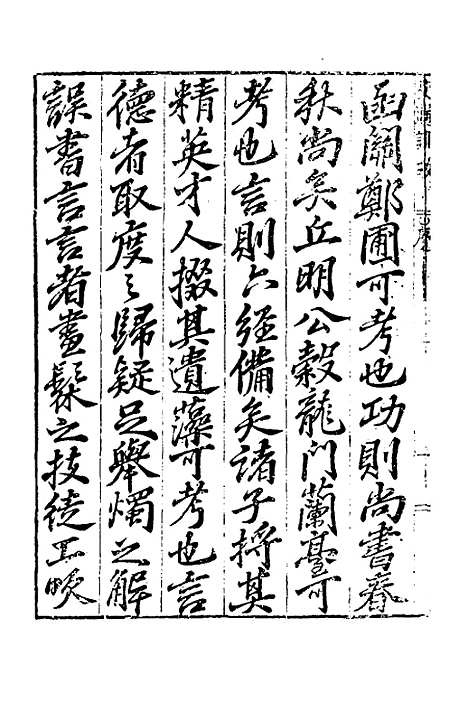 函關鄭圃可考也功則尚書春
秋尚矣丘明公穀龍門蘭臺可
考也言則六經備矣諸子捋其
精英才人掇其遺藻可考也言
德者取度之歸疑足舉燭之解
誤書言言者畫鬆之技徒工